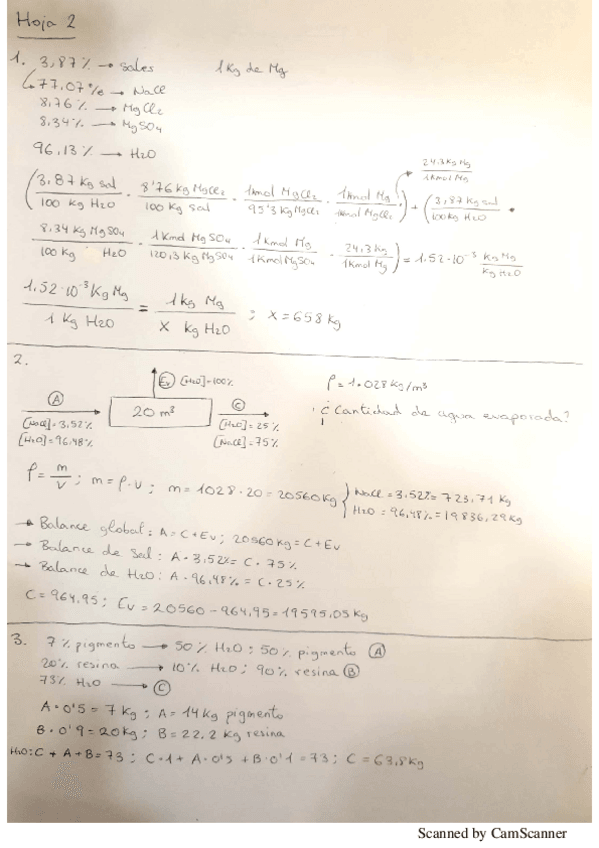 Hoja 2
1. 3,87% → sales 1 Kg de Mg
77,07% → NaCl
8,76% → MgCl2
8,34% → MgSO4
96,13% → H2O
24,3 Kg Mg / 1 Kmol Mg
(3,87 Kg sal / 100 Kg H2O · 8'76 Kg MgCl2 / 100 Kg sal · 1 Kmol MgCl2 / 95'3 Kg MgCl2 · 1 Kmol Mg / 1 Kmol MgCl2) + (3,87 Kg sal / 100 Kg H2O ·
8,34 Kg MgSO4 / 100 Kg H2O · 1 Kmol MgSO4 / 120,3 Kg MgSO4 · 1 Kmol Mg / 1 Kmol MgSO4 · 24,3 Kg / 1 Kmol Mg) = 1.52·10⁻³ Kg Mg / Kg H2O
1,52·10⁻³ Kg Mg / 1 Kg H2O = 1 Kg Mg / X Kg H2O ; X = 658 Kg
2.
Ev [H2O]=100% ρ = 1.028 Kg/m³
A 20 m³ C ¿Cantidad de agua evaporada?
[NaCl]=3,52% [H2O]=25%
[H2O]=96,48% [NaCl]=75%
ρ = m/V ; m = ρ·V ; m = 1028·20 = 20560 Kg { NaCl = 3,52% = 723,71 Kg
H2O = 96,48% = 19.836,29 Kg
→ Balance global: A = C + Ev ; 20560 Kg = C + Ev
→ Balance de Sal: A · 3,52% = C · 75%
→ Balance de H2O: A · 96,48% = C · 25%
C = 964,95 ; Ev = 20560 - 964,95 = 19595,05 Kg
3. 7% pigmento → 50% H2O ; 50% pigmento A
20% resina → 10% H2O ; 90% resina B
73% H2O → C
A · 0'5 = 7 Kg ; A = 14 Kg pigmento
B · 0'9 = 20 Kg ; B = 22.2 Kg resina
H2O: C + A + B = 73 ; C·1 + A·0'5 + B·0'1 = 73 ; C = 63,8 Kg
Scanned by CamScanner